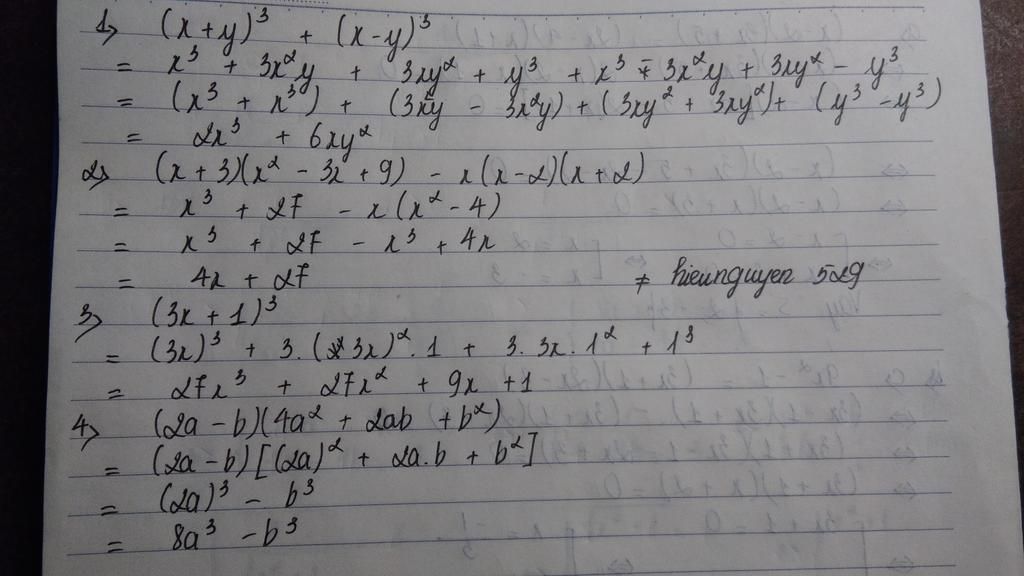 1, (x+y)³ + (x-y)³
= x³ + 3x²y + 3xy² + y³ + x³ - 3x²y + 3xy² - y³
= (x³ + x³) + (3xy - 3x²y) + (3xy² + 3xy²) + (y³ - y³)
= 2x³ + 6xy²
2, (x + 3)(x² - 3x + 9) - x(x-2)(x+2)
= x³ + 27 - x(x² - 4)
= x³ + 27 - x³ + 4x
= 4x + 27 ≠ hieunguyen 529
3, (3x + 1)³
= (3x)³ + 3.(3x)².1 + 3.3x.1² + 1³
= 27x³ + 27x² + 9x + 1
4, (2a - b)(4a² + 2ab + b²)
= (2a - b)[(2a)² + 2a.b + b²]
= (2a)³ - b³
= 8a³ - b³